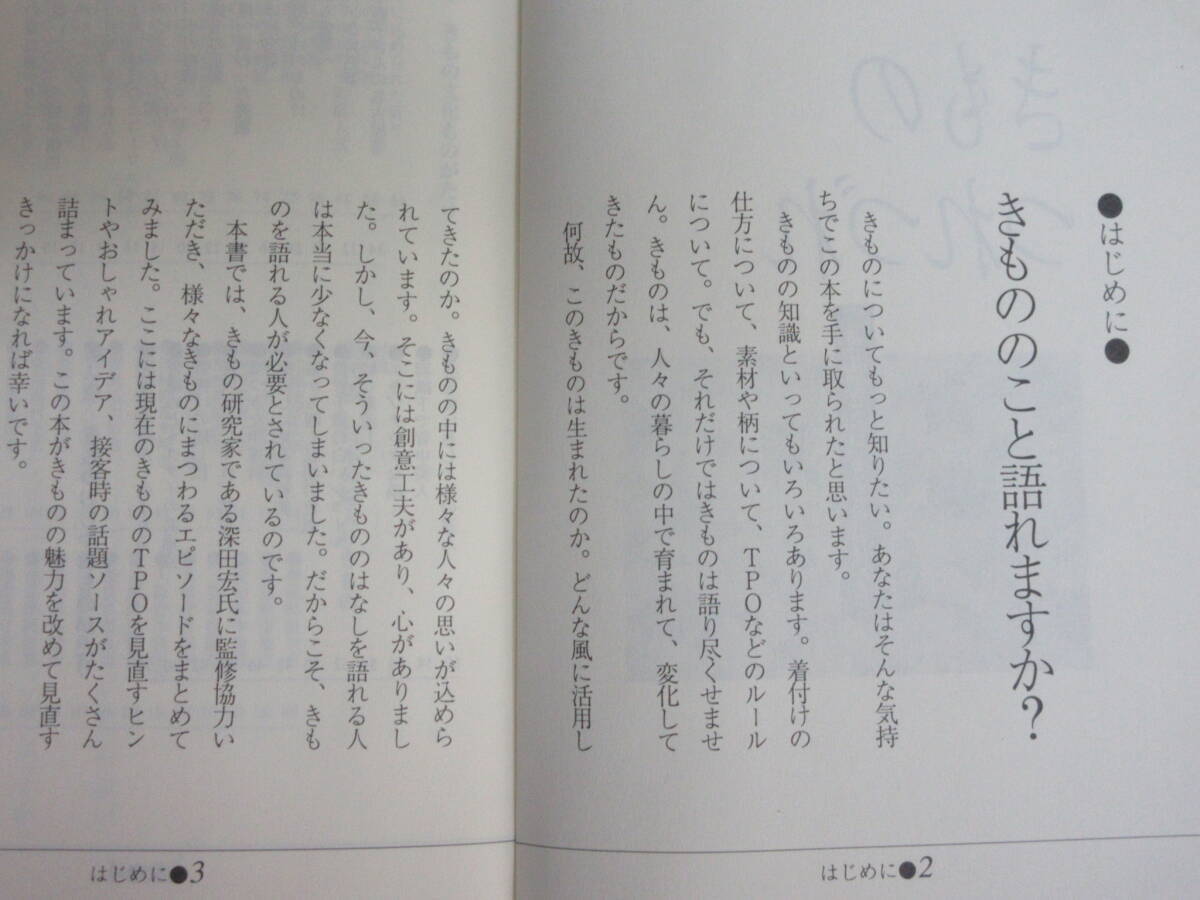 ●はじめに●
きもののこと語れますか?
きものについてもっと知りたい。あなたはそんな気持
ちでこの本を手に取られたと思います。
きものの知識といってもいろいろあります。着付けの
仕方について、素材や柄について、TPOなどのルール
について。でも、それだけではきものは語り尽くせませ
ん。きものは、人々の暮らしの中で育まれて、変化して
きたものだからです。
何故、このきものは生まれたのか。どんな風に活用し
はじめに●2
てきたのか。きものの中には様々な人々の思いが込めら
れています。そこには創意工夫があり、心がありまし
た。しかし、今、そういったきもののはなしを語れる人
は本当に少なくなってしまいました。だからこそ、きも
のを語れる人が必要とされているのです。
本書では、きもの研究家である深田宏氏に監修協力い
ただき、様々なきものにまつわるエピソードをまとめて
みました。ここには現在のきもののTPOを見直すヒン
トやおしゃれアイデア、接客時の話題ソースがたくさん
詰まっています。この本がきものの魅力を改めて見直す
きっかけになれば幸いです。
はじめに●3